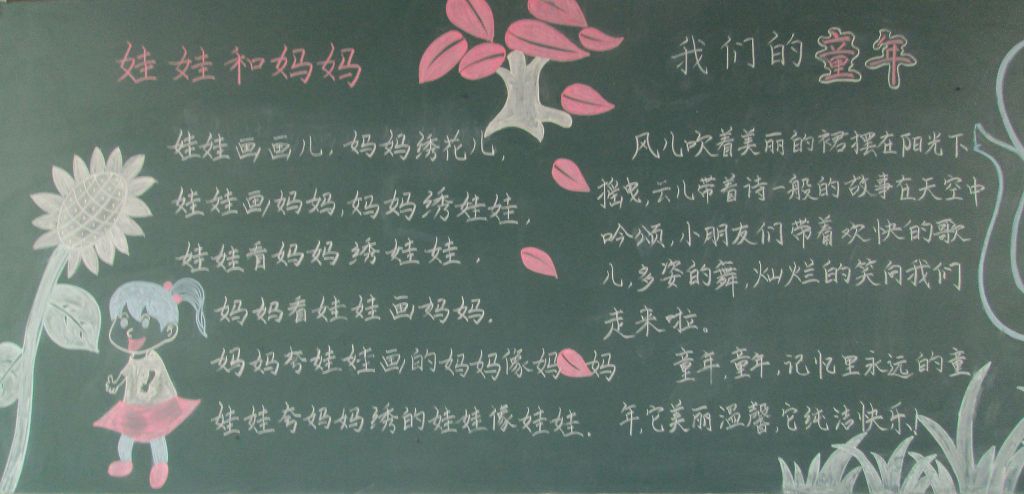 娃娃和妈妈
娃娃画画儿，妈妈绣花儿，
娃娃画妈妈，妈妈绣娃娃，
娃娃看妈妈绣娃娃，
妈妈看娃娃画妈妈。
妈妈夸娃娃画的妈妈像妈妈
娃娃夸妈妈绣的娃娃像娃娃。
我们的童年
风儿吹着美丽的裙摆在阳光下
摇曳，云儿带着诗一般的故事在天空中
吟颂，小朋友们带着欢快的歌
儿，多姿的舞，灿烂的笑向我们
走来啦。
童年，童年，记忆里永远的童
年，它美丽温馨，它纯洁快乐！